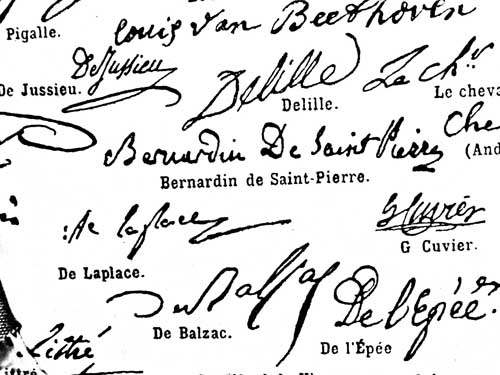 Louis van Beethoven
Pigalle.
De Jussieu
De Jussieu.
Delille
Delille.
Le ch.r
Le cheva
Bernardin De Saint Pierre
Bernardin de Saint-Pierre.
Che
(And
De laplace
De Laplace.
G Cuvier
G Cuvier.
De Balzac
De Balzac.
De l'Epée
De l'Épée
Littré
Littré